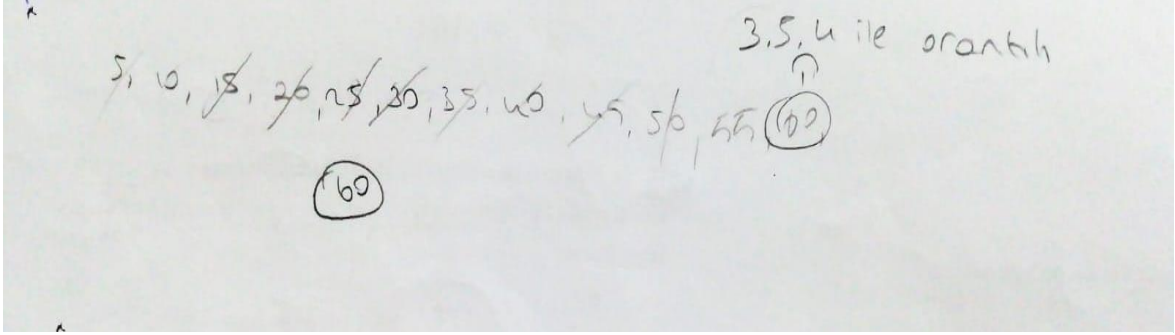 3.5.4 ile orantılı
5, 10, 15, 20, 25, 30, 35, 40, 45, 50, 55 60
60